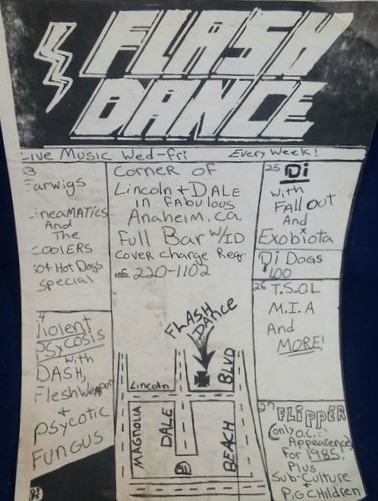 FLASH
DANCE
Live Music Wed-Fri Every Week!
Earwigs
CineaMATICs
And
The
COOLERS
50¢ Hot Dogs
Special
Violent
PSYCOSIS
with
DASH,
Flesh Weapon
+
PSYCOTIC
FUNGUS
Corner of
Lincoln + DALE
in FABulous
Anaheim, ca.
Full Bar w/ID
Cover Charge Req.
220-1102
FLASH
DANCE
Lincoln
MAGNOLIA
DALE
BEACH BLVD
P
25 Di
with
FALL OUT
And
Exobiota
Di Dogs
100
26 T.S.O.L
M.I.A
And
MORE!
27 FLiPPER
(only O.C.
Appearence
For 1985!)
Plus
Sub-Culture
+ P.G. CHildren